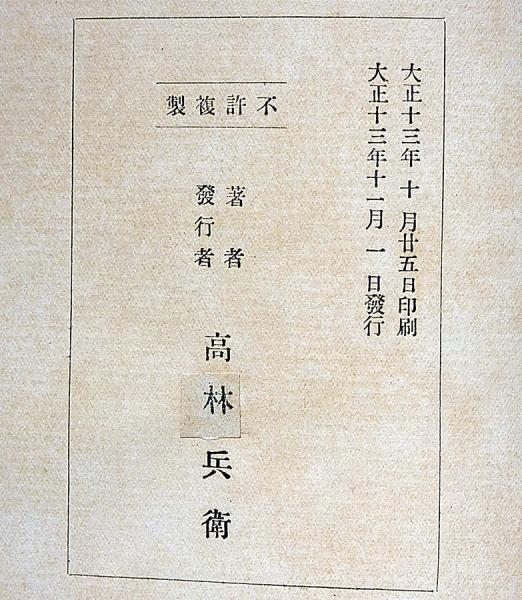 大正十三年十月廿五日印刷
大正十三年十一月一日發行
不許複製
著者
發行者
高林兵衛